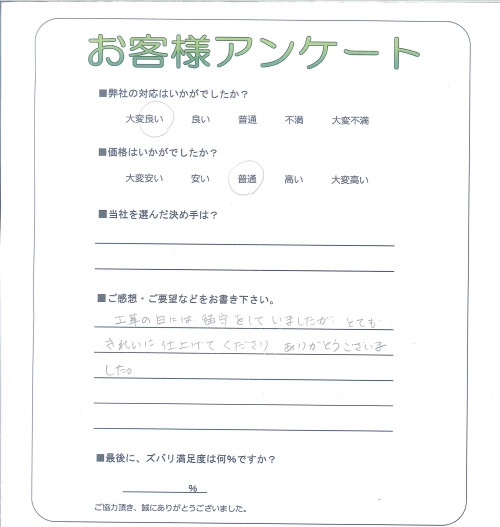 お客様アンケート
■弊社の対応はいかがでしたか？
大変良い 良い 普通 不満 大変不満
■価格はいかがでしたか？
大変安い 安い 普通 高い 大変高い
■当社を選んだ決め手は？
■ご感想・ご要望などをお書き下さい。
工事の日には 留守をして いましたが とても
きれいに 仕上げて くださり ありがとうございま
した。
■最後に、ズバリ満足度は何％ですか？
％
ご協力頂き、誠にありがとうございました。